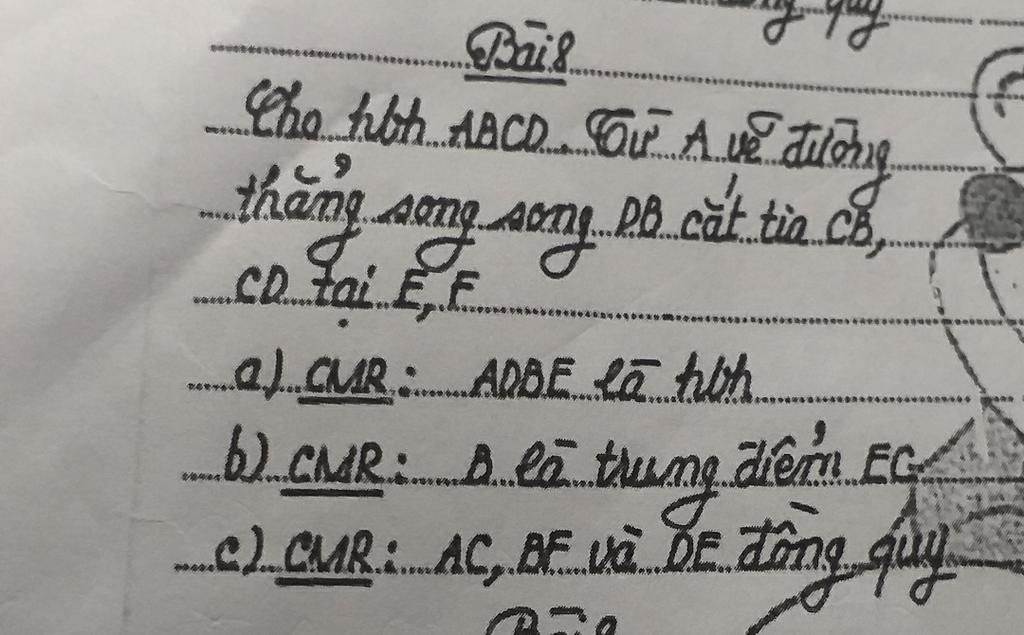 quy
Bài 8
Cho hbh ABCD. Từ A vẽ đường
thẳng song song DB cắt tia CB,
CD tại E, F
a) CMR: ADBE là hbh
b) CMR: B là trung điểm EC
c) CMR: AC, BF và DE đồng quy